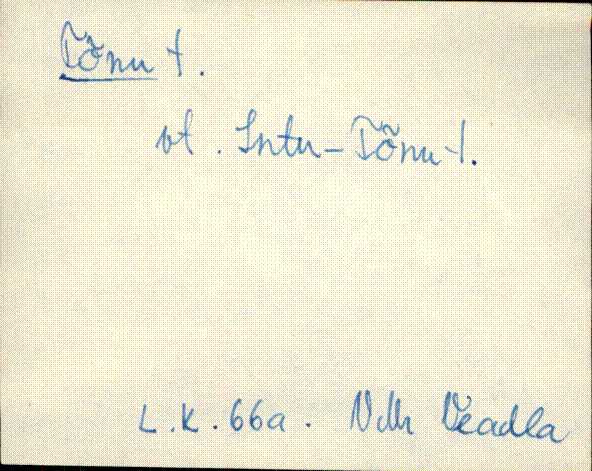 Tõnu t.
vt. Intu-Tõnu t.
L.K. 66a. Vdr Veadla